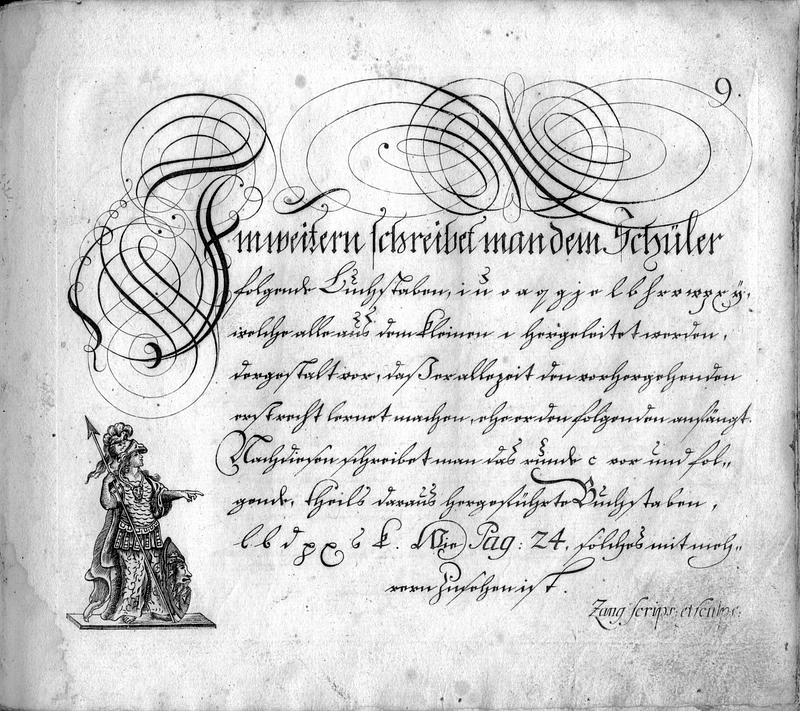 9.
Im weitern schreibet man dem Schüler
folgende Buchstaben, i ü o a q g j e l b h r v w p x y,
welche alle aus dem kleinen i hergeleitet werden,
dergestalt vor, daß er allezeit den vorhergehenden
erst recht lernet machen, ehe er den folgenden anfängt.
Nach diesen schreibet man das runde c vor und fol-
gende, theils daraus hergeführte Buchstaben,
l b d p x s k. Wie Pag: 24. solches mit meh-
rern zusehen ist.
Zang scrips: et sculps: